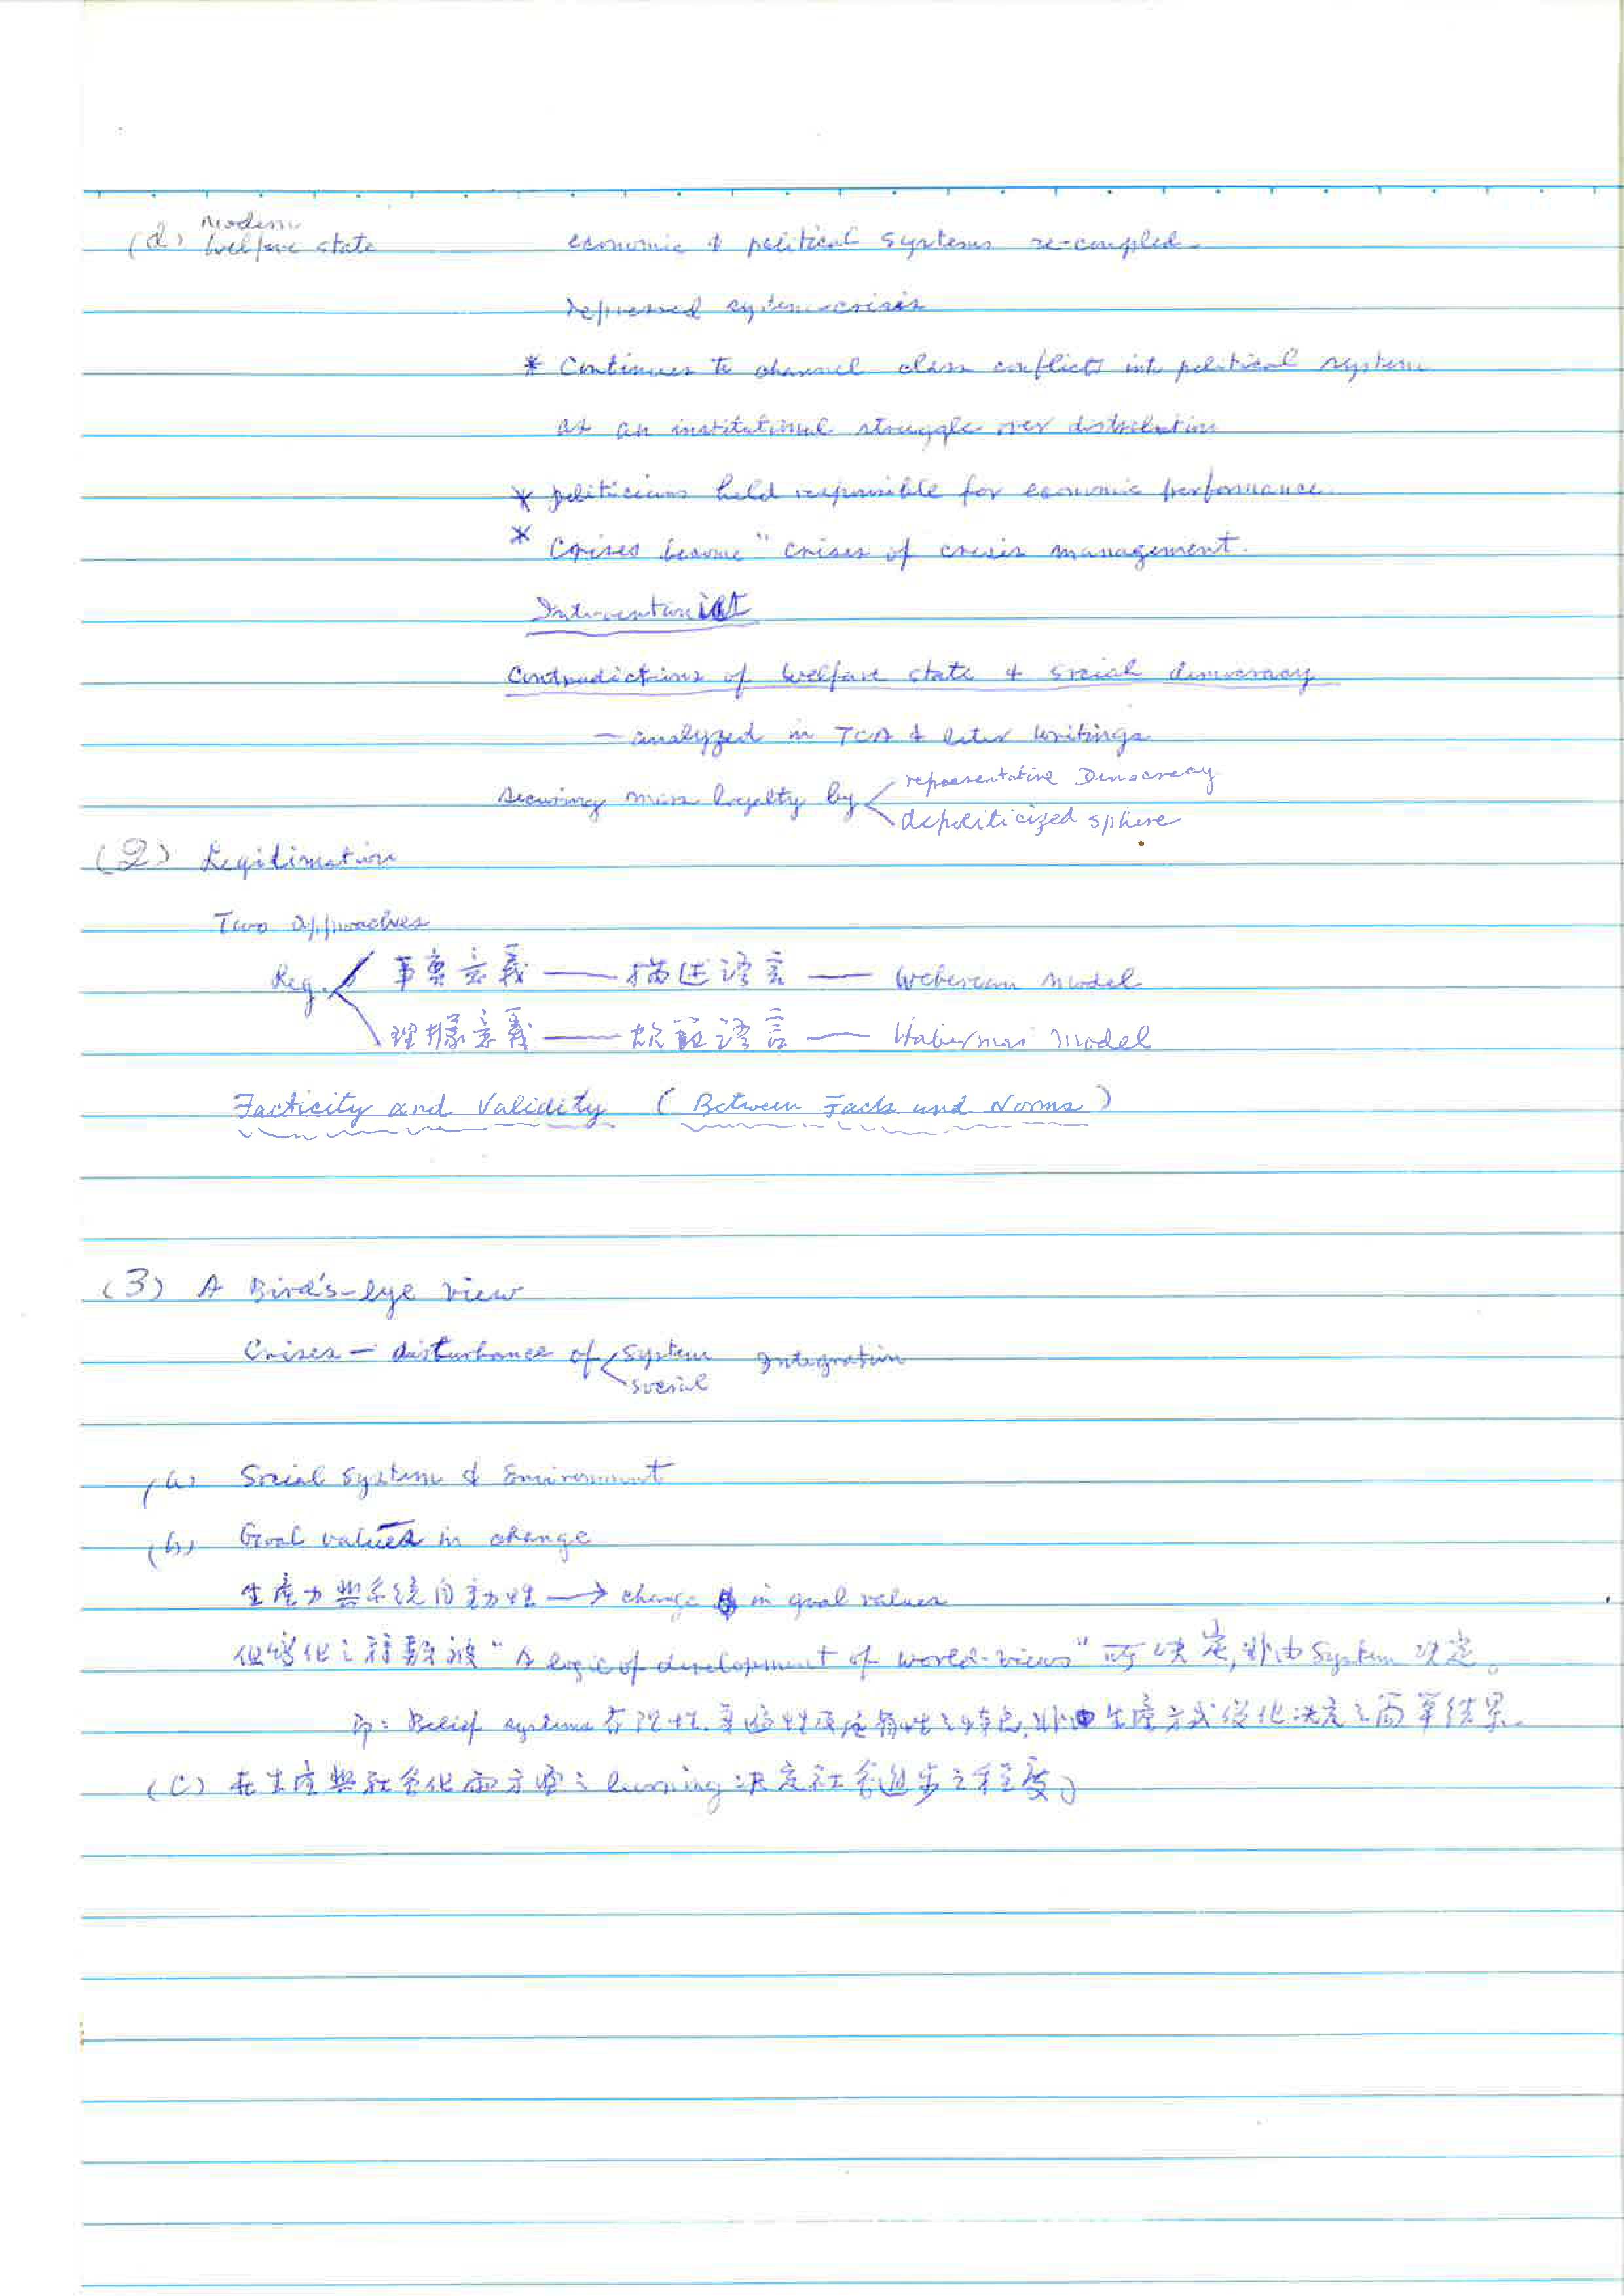 (d) Modern
welfare state economic & political systems re-coupled
Repressed system-crisis
* Continues to channel class conflicts into political system
as an institutional struggle over distribution
* politicians held responsible for economic performance
* Crises become "crises of crisis management.
Interventionist
Contradictions of welfare state & social democracy
— analyzed in TCA & later writings
securing mass loyalty by representative Democracy
depoliticized sphere
(2) Legitimation
Two approaches
Leg. 事實意義 — 描述語言 — Weberean model
理據意義 — 規範語言 — Habermas Model
Facticity and Validity (Between Facts and Norms)
(3) A Bird's-eye view
Crises — disturbance of system Integration
social
(a) Social System & Environment
(b) Goal values in change
生產力與系統自主性 → change in goal values
但變化之 被 "A logic of development of world-views" 所決定, 非由 System 決定。
即: Belief systems 非由生產方式變化決定之簡單結果.
(C) 在生產與社會化兩方面之 learning 決定社會進步之程度。